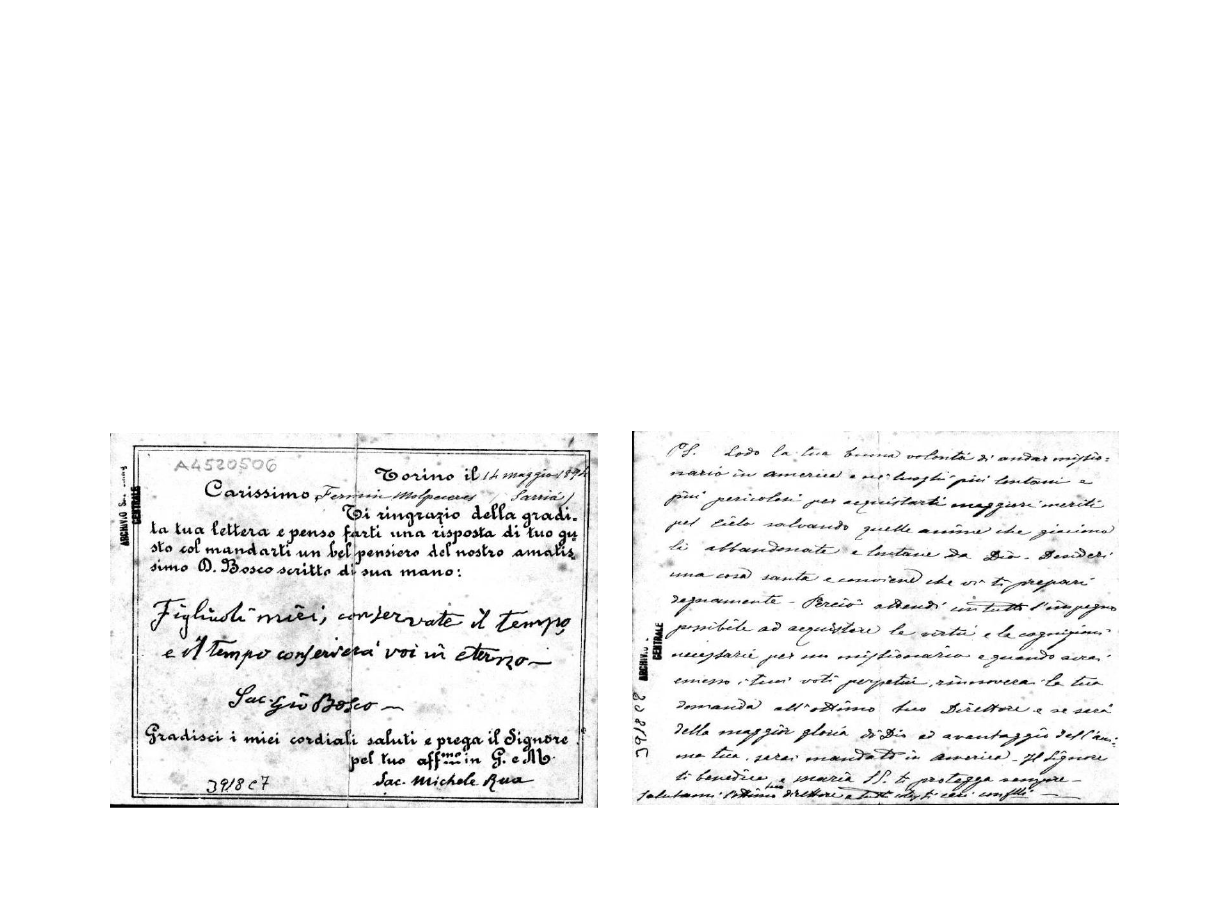 A4520506
ARCHIVIO
CENTRALE
Torino il 14 maggio 1894
Carissimo Fermin Molpeceres (Sarrià)
Ti ringrazio della gradi-
ta tua lettera e penso farti una risposta di tuo gu
sto col mandarti un bel pensiero del nostro amatis
simo D. Bosco scritto di sua mano:
Figliuoli miei, conservate il tempo
e il tempo conserverà voi in eterno
Sac. Gio Bosco
Gradisci i miei cordiali saluti e prega il Signore
pel tuo aff.mo in G. e M.
Sac. Michele Rua
3918 C7
PS. Lodo la tua buona volontà di andar missio-
nario in America e ne' luoghi più lontani e
più pericolosi per acquistarti maggiori meriti
pel cielo salvando quelle anime che giacciono
là abbandonate e lontane da Dio. Desideri
una cosa santa e conviene che vi ti prepari
degnamente. Perciò attendi con tutto l'impegno
possibile ad acquistare le virtù e le cognizioni
necessarie per un missionario e quando avrai
emesso i tuoi voti perpetui, rinnoverai la tua
domanda all'ottimo tuo Direttore e se sarà
della maggior gloria di Dio ed avantaggio dell'ani-
ma tua, sarai mandato in America. Il Signore
ti benedica e Maria SS. ti protegga sempre
Salutami l'ottimo tuo direttore e tutti cari
ARCHIV
CENTRALE
3918 C8